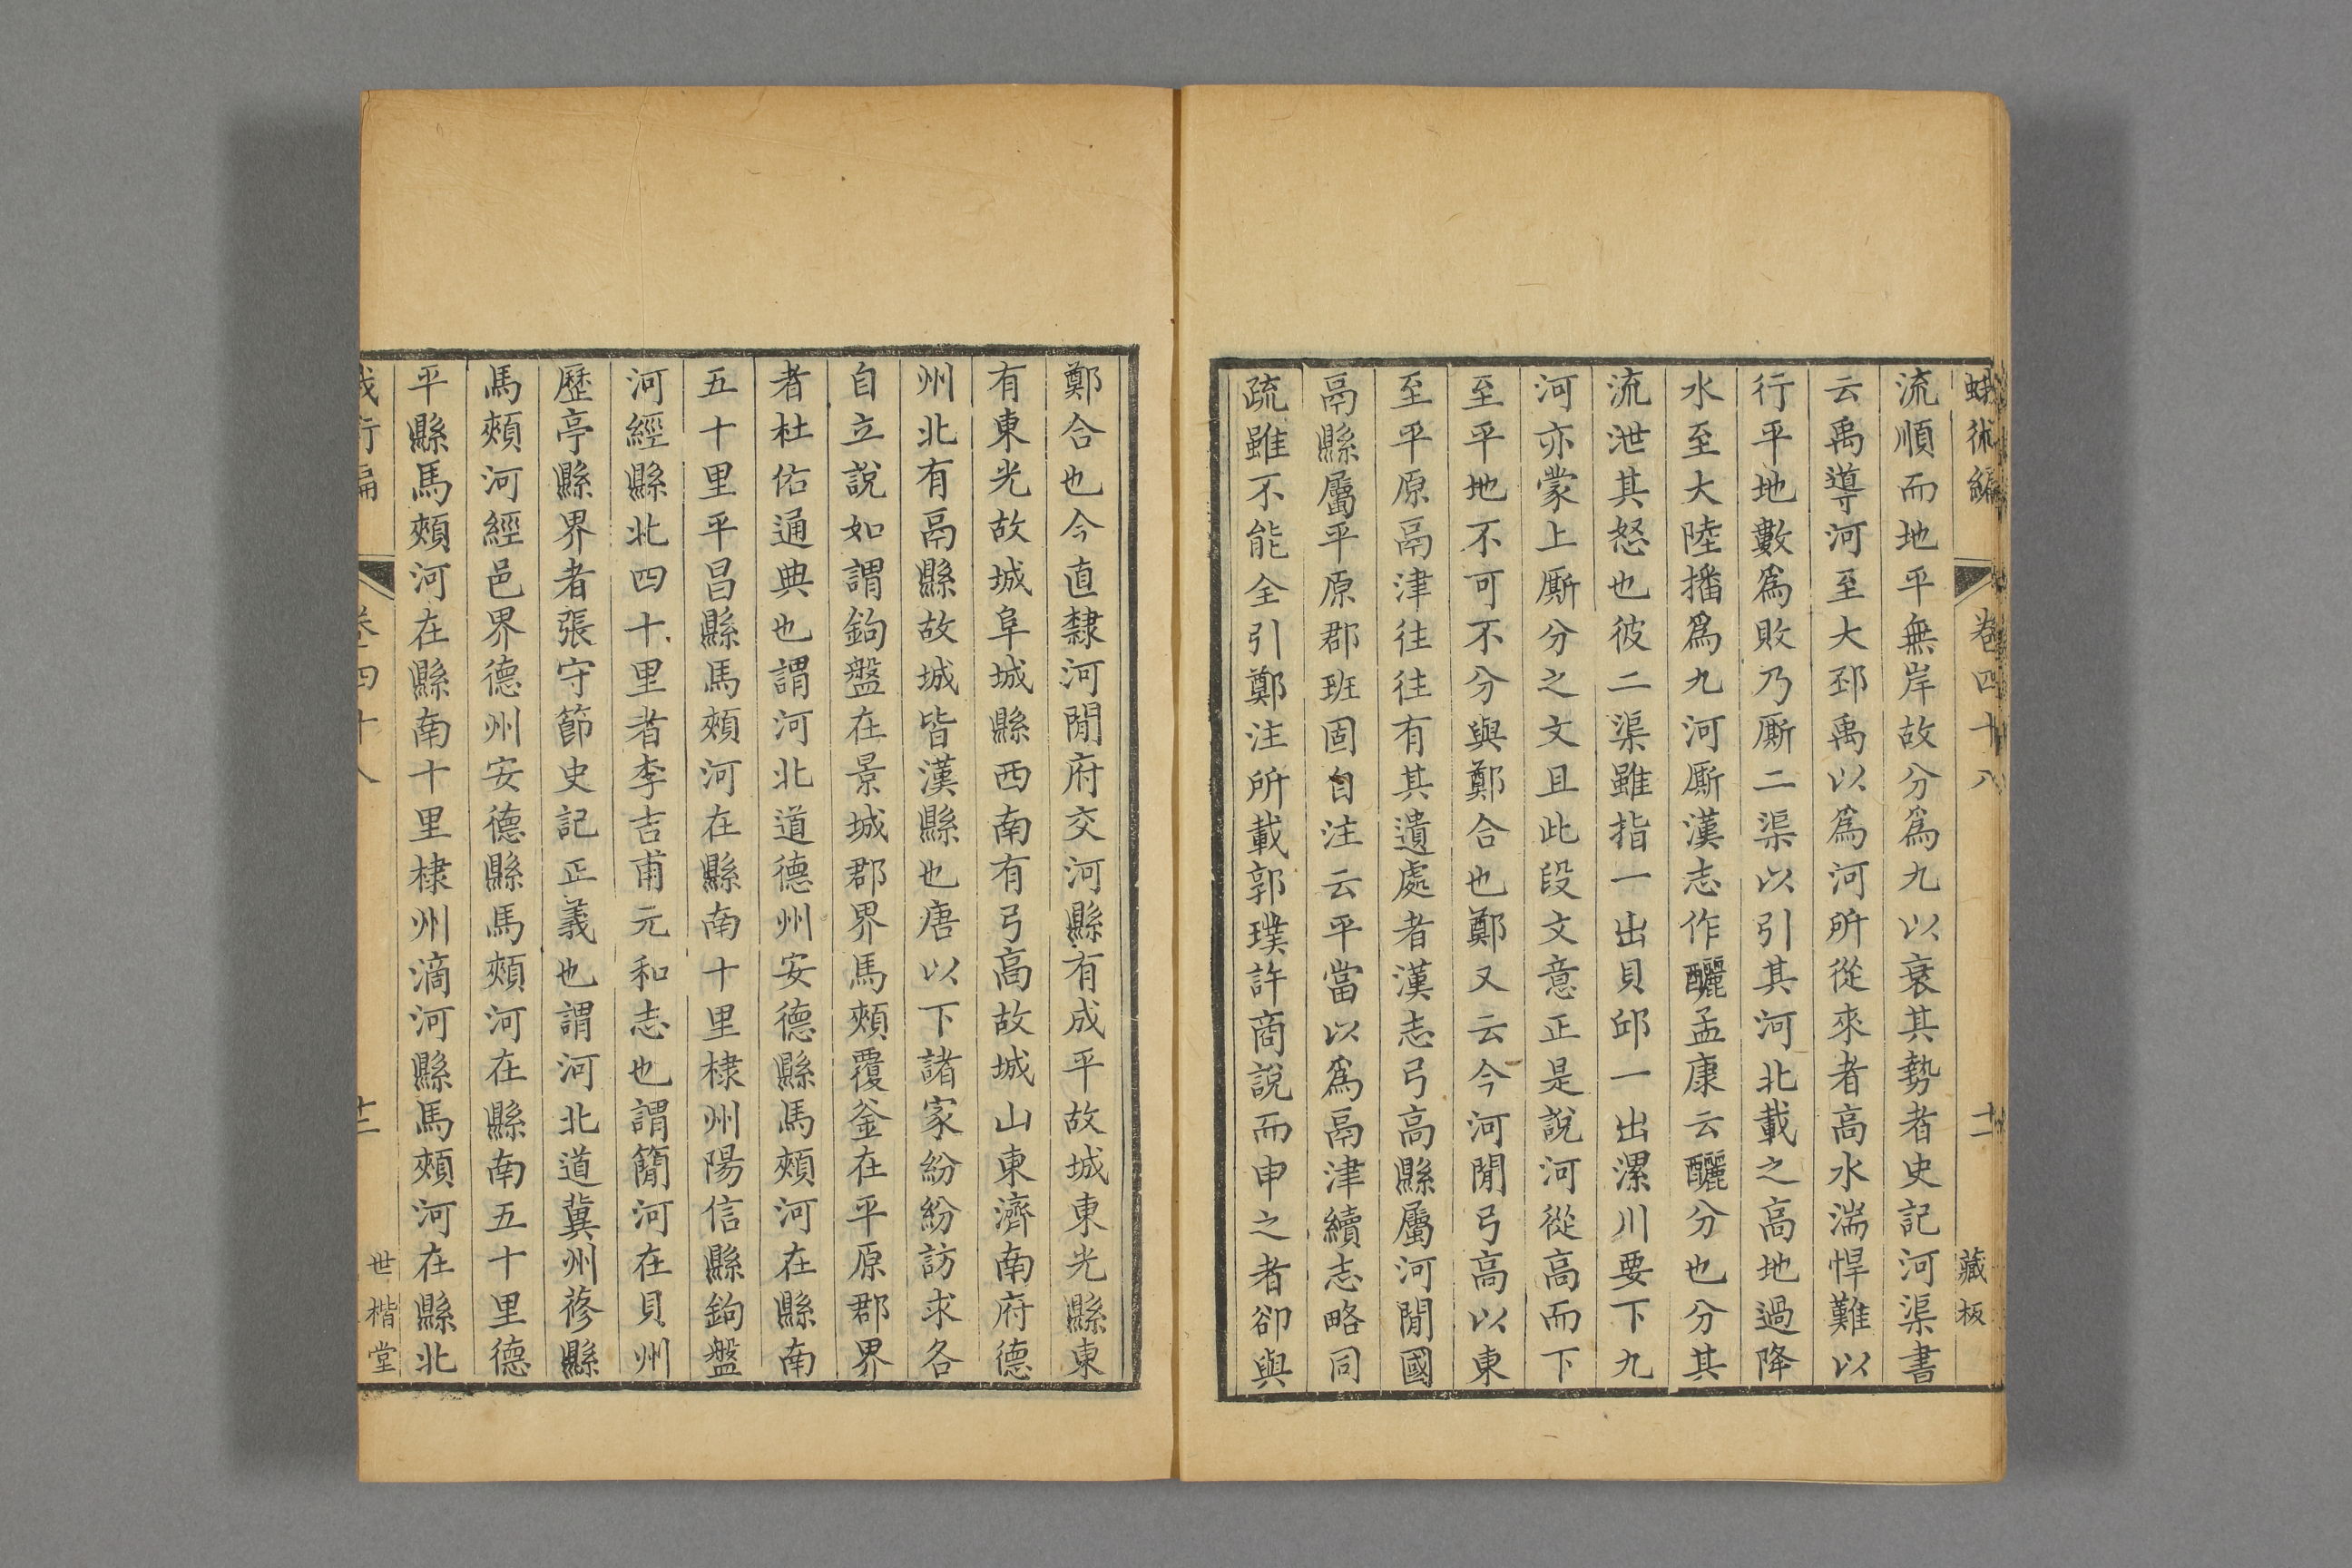 蛾術編 卷四十八 十二 藏板
流順而地平無岸故分爲九以衰其勢者史記河渠書
云禹導河至大邳禹以爲河所從來者高水湍悍難以
行平地數爲敗乃厮二渠以引其河北載之高地過降
水至大陸播爲九河厮漢志作釃孟康云釃分也分其
流泄其怒也彼二渠雖指一出貝邱一出漯川要下九
河亦蒙上厮分之文且此段文意正是說河從高而下
至平地不可不分與鄭合也鄭又云今河閒弓高以東
至平原鬲津往往有其遺處者漢志弓高縣屬河閒國
鬲縣屬平原郡班固自注云平當以爲鬲津續志略同
疏雖不能全引鄭注所載郭璞許商說而申之者卻與
鄭合也今直隸河閒府交河縣有成平故城東光縣東
有東光故城阜城縣西南有弓高故城山東濟南府德
州北有鬲縣故城皆漢縣也唐以下諸家紛紛訪求各
自立說如謂鉤盤在景城郡界馬頰覆釜在平原郡界
者杜佑通典也謂河北道德州安德縣馬頰河在縣南
五十里平昌縣馬頰河在縣南十里棣州陽信縣鉤盤
河經縣北四十里者李吉甫元和志也謂簡河在貝州
歷亭縣界者張守節史記正義也謂河北道冀州蓚縣
馬頰河經邑界德州安德縣馬頰河在縣南五十里德
平縣馬頰河在縣南十里棣州滴河縣馬頰河在縣北
卷四十八 世楷堂